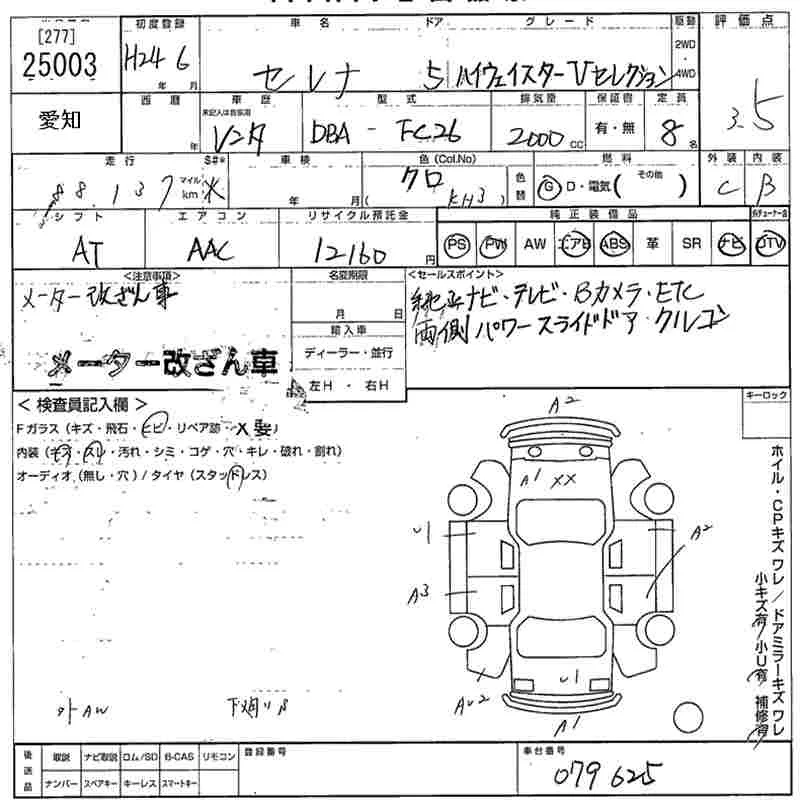 [277]
25003
初度登録
H24 6
年 月
車名
ドア
グレード
セレナ
5
ハイウェイスター Vセレクション
駆動
2WD
4WD
評価点
3.5
愛知
西暦
年
車歴
未記入は自家用
レンタ
型式
DBA - FC26
排気量
2000 cc
保証書
有・無
定員
8 名
走行
S#*
88,137
マイル
km
*
車検
年 月(
色(Col.No)
クロ
KH3 )
色替
燃料
G D・電気( その他 )
外装
C
内装
B
シフト
AT
エアコン
AAC
リサイクル預託金
12160 円
純正装備品
PS PW AW エアB ABS 革 SR ナビ TV
<注意事項>
メーター改ざん車
メーター改ざん車
名変期限
月 日
輸入車
ディーラー・並行
左H ・ 右H
<セールスポイント>
純正ナビ・テレビ・Bカメラ・ETC
両側パワースライドドア・クルコン
<検査員記入欄>
Fガラス(キズ・飛石・ヒビ・リペア跡・X要)
内装(キズ・スレ・汚れ・シミ・コゲ・穴・キレ・破れ・割れ)
オーディオ(無し・穴)/タイヤ(スタッドレス)
外AW
キーロック
A2
A1 XX
U1
A2
A3
U1
AU2
A1
ホイル・CPキズ ワレ/ドアミラーキズ ワレ
小キズ有/小U有/補修有
後送品
取説 ナビ取説 ロム/SD B-CAS リモコン
ナンバー スペアキー キーレス スマートキー
登録番号
車台番号
079625